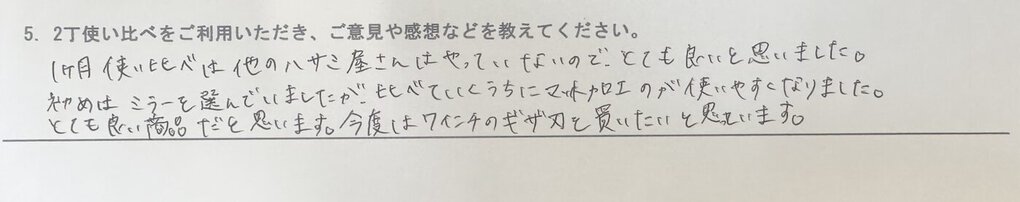 5. 2丁使い比べをご利用いただき、ご意見や感想などを教えてください。
1ヶ月使い比べは他のハサミ屋さんはやっていないので、とても良いと思いました。
初めはミラーを選んでいましたが、比べていくうちにマット加工のが使いやすくなりました。
とても良い商品だと思います。今度は7インチのギザ刃を買いたいと思っています。